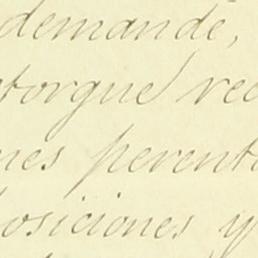 demande,
otorgue rec
nes perento
posiciones y